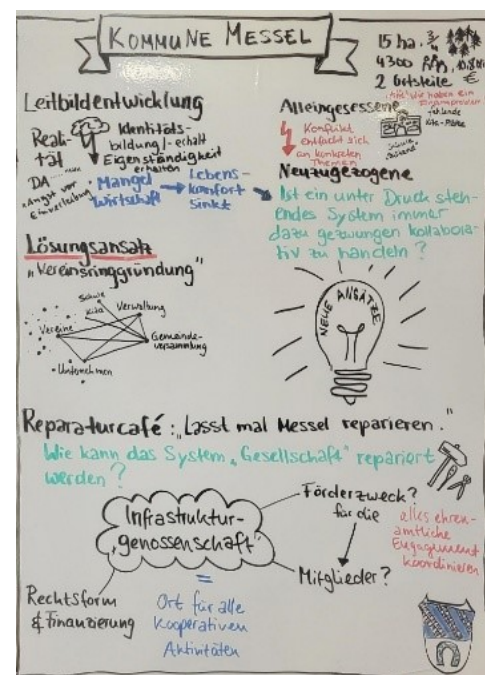 KOMMUNE MESSEL
15 ha. 3/4
4300
2 Ortsteile €
Leitbildentwicklung
Reali-
tät
Identitäts-
bildung/-erhalt
Eigenständigkeit
erhalten
DA
"Angst vor
Einverleibung"
Mangel
Wirtschaft
Lebens-
komfort
sinkt
Alteingesessene
Konflikt
entfacht sich
an konkreten
Themen
fehlende
Kita-Plätze
Neuzugezogene
Ist ein unter Druck steh-
endes System immer
dazu gezwungen kollabora-
tiv zu handeln?
Lösungsansatz
"Vereinsringgründung"
Schule
Kita
Verwaltung
Vereine
Gemeinde-
versammlung
Unternehmen
NEUE ANSÄTZE
Reparaturcafé: "Lasst mal Messel reparieren."
Wie kann das System "Gesellschaft" repariert
werden?
"Infrastruktur-
genossenschaft"
Förderzweck?
für die
Mitglieder?
alles ehren-
amtliche
Engagement
koordinieren
Rechtsform
& Finanzierung
=
Ort für alle
kooperativen
Aktivitäten